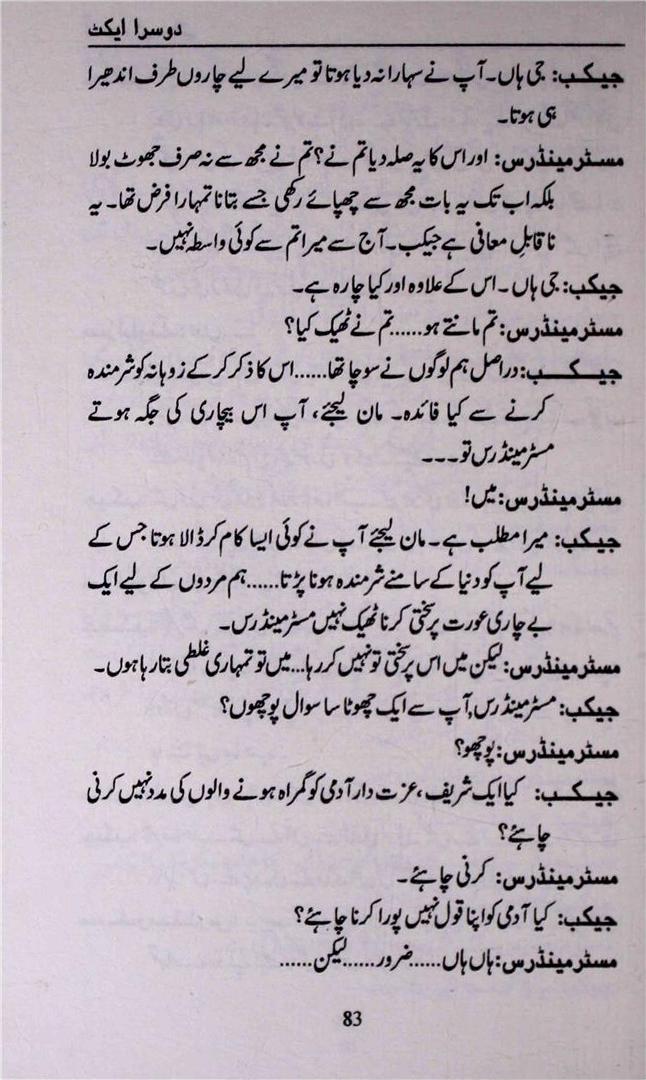 دوسرا ایکٹ
جیکب: جی ہاں۔ آپ نے سہارا نہ دیا ہوتا تو میرے لیے چاروں طرف اندھیرا
ہی ہوتا۔
مسٹر مینڈرس: اور اس کا یہ صلہ دیا تم نے؟ تم نے مجھ سے نہ صرف جھوٹ بولا
بلکہ اب تک یہ بات مجھ سے چھپائے رکھی جسے بتانا تمہارا فرض تھا۔ یہ
ناقابلِ معافی ہے جیکب۔ آج سے میرا تم سے کوئی واسطہ نہیں۔
جیکب: جی ہاں۔ اس کے علاوہ اور کیا چارہ ہے۔
مسٹر مینڈرس: تم مانتے ہو...... تم نے ٹھیک کیا؟
جیکب: دراصل ہم لوگوں نے سوچا تھا...... اس کا ذکر کر کے زوہانہ کو شرمندہ
کرنے سے کیا فائدہ۔ مان لیجئے، آپ اس بیچاری کی جگہ ہوتے
مسٹر مینڈرس تو۔۔۔
مسٹر مینڈرس: میں!
جیکب: میرا مطلب ہے۔ مان لیجئے آپ نے کوئی ایسا کام کر ڈالا ہوتا جس کے
لیے آپ کو دنیا کے سامنے شرمندہ ہونا پڑتا...... ہم مردوں کے لیے ایک
بے چاری عورت پر سختی کرنا ٹھیک نہیں مسٹر مینڈرس۔
مسٹر مینڈرس: لیکن میں اس پر سختی تو نہیں کر رہا... میں تو تمہاری غلطی بتا رہا ہوں۔
جیکب: مسٹر مینڈرس, آپ سے ایک چھوٹا سا سوال پوچھوں؟
مسٹر مینڈرس: پوچھو؟
جیکب: کیا ایک شریف، عزت دار آدمی کو گمراہ ہونے والوں کی مدد نہیں کرنی
چاہئے؟
مسٹر مینڈرس: کرنی چاہئے۔
جیکب: کیا آدمی کو اپنا قول نہیں پورا کرنا چاہئے؟
مسٹر مینڈرس: ہاں ہاں...... ضرور...... لیکن......
83